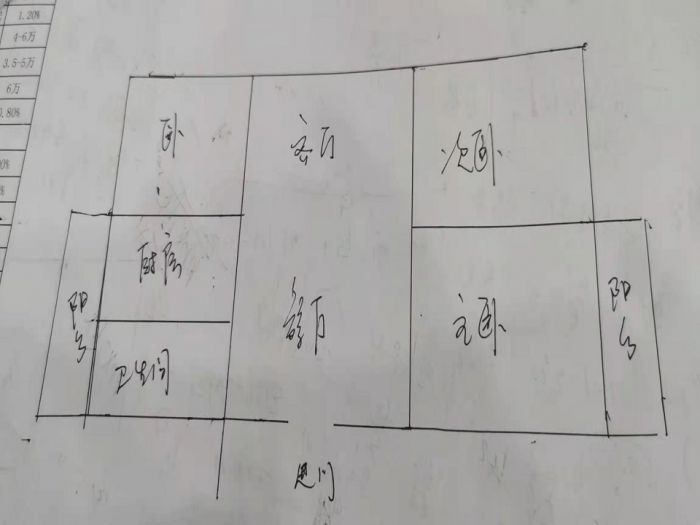 1.20%
4-6万
3.5-5万
6万
0.80%
卧
客厅
次卧
厨房
阳台
餐厅
主卧
阳台
卫生间
进门